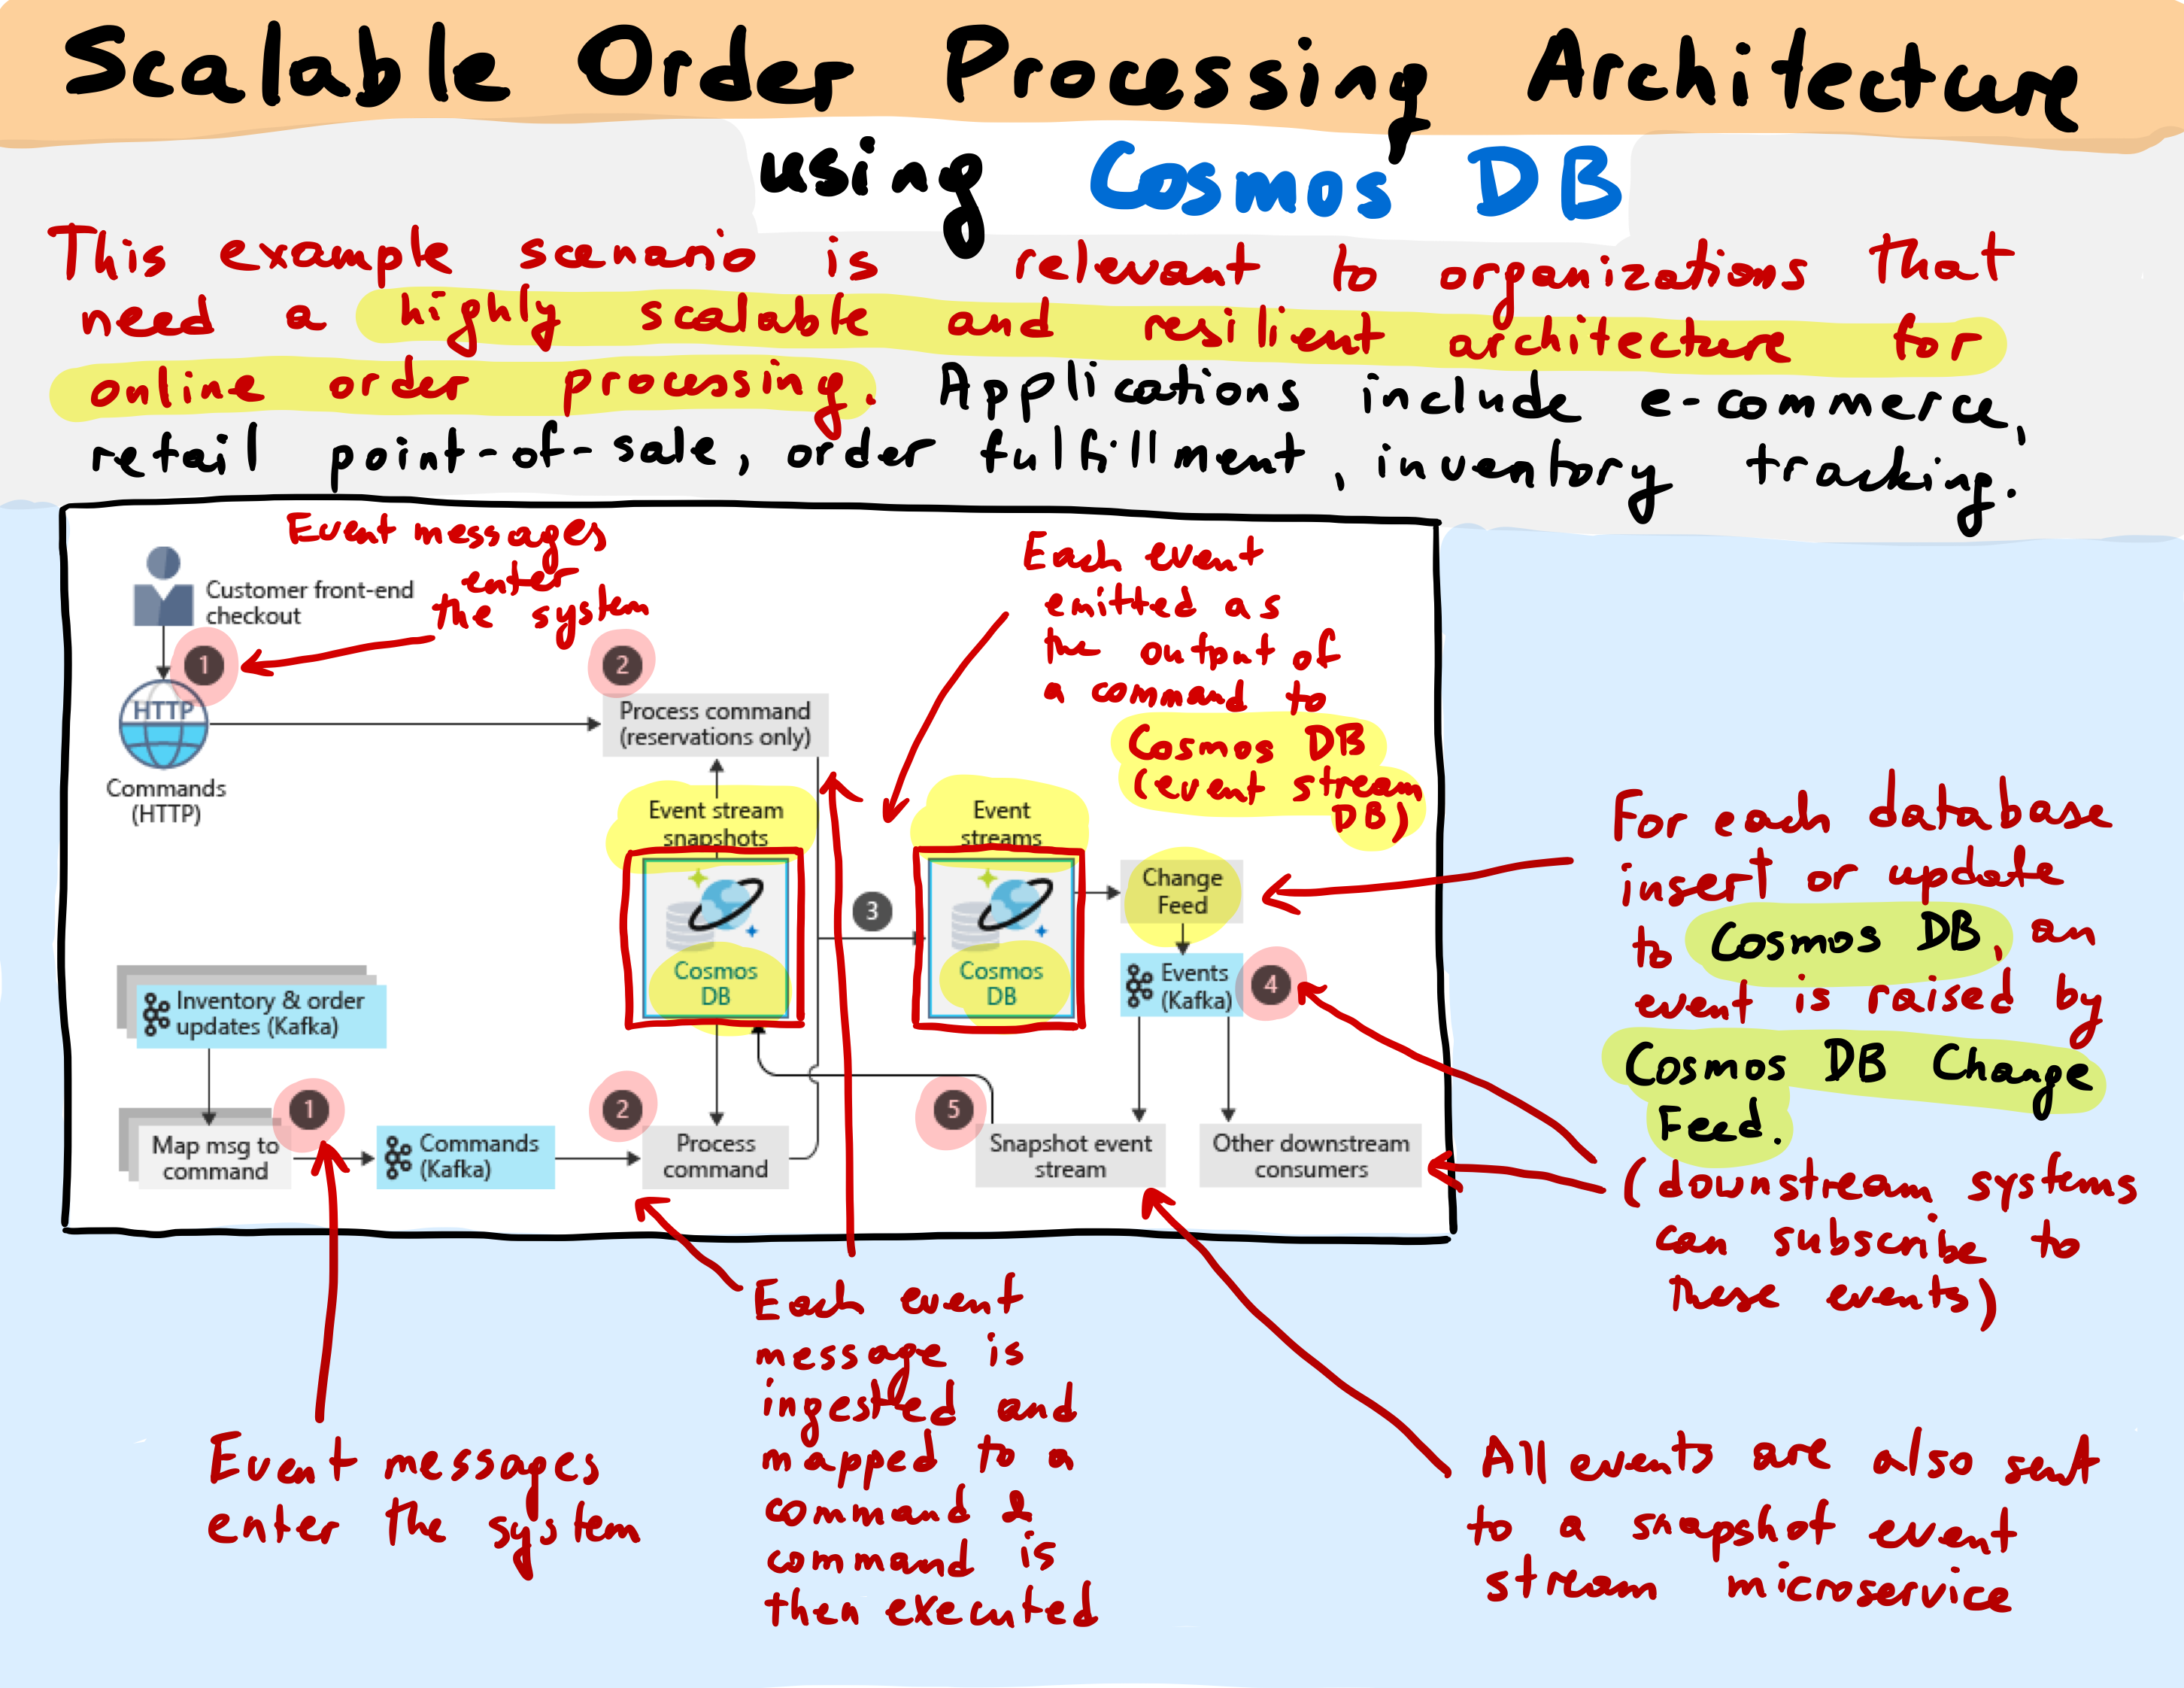 Scalable Order Processing Architecture
using Cosmos DB
This example scenario is relevant to organizations that
need a highly scalable and resilient architecture for
online order processing. Applications include e-commerce,
retail point-of-sale, order fulfillment, inventory tracking.
Event messages
enter
the system
Customer front-end
checkout
1
HTTP
Commands
(HTTP)
2
Process command
(reservations only)
Each event
emitted as
the output of
a command to
Cosmos DB
(event stream
DB)
Event stream
snapshots
Cosmos
DB
3
Event
streams
Cosmos
DB
Change
Feed
Events
(Kafka)
4
Inventory & order
updates (Kafka)
1
Map msg to
command
Commands
(Kafka)
2
Process
command
5
Snapshot event
stream
Other downstream
consumers
For each database
insert or update
to Cosmos DB, an
event is raised by
Cosmos DB Change
Feed.
(downstream systems
can subscribe to
these events)
Event messages
enter the system
Each event
message is
ingested and
mapped to a
command &
command is
then executed
All events are also sent
to a snapshot event
stream microservice